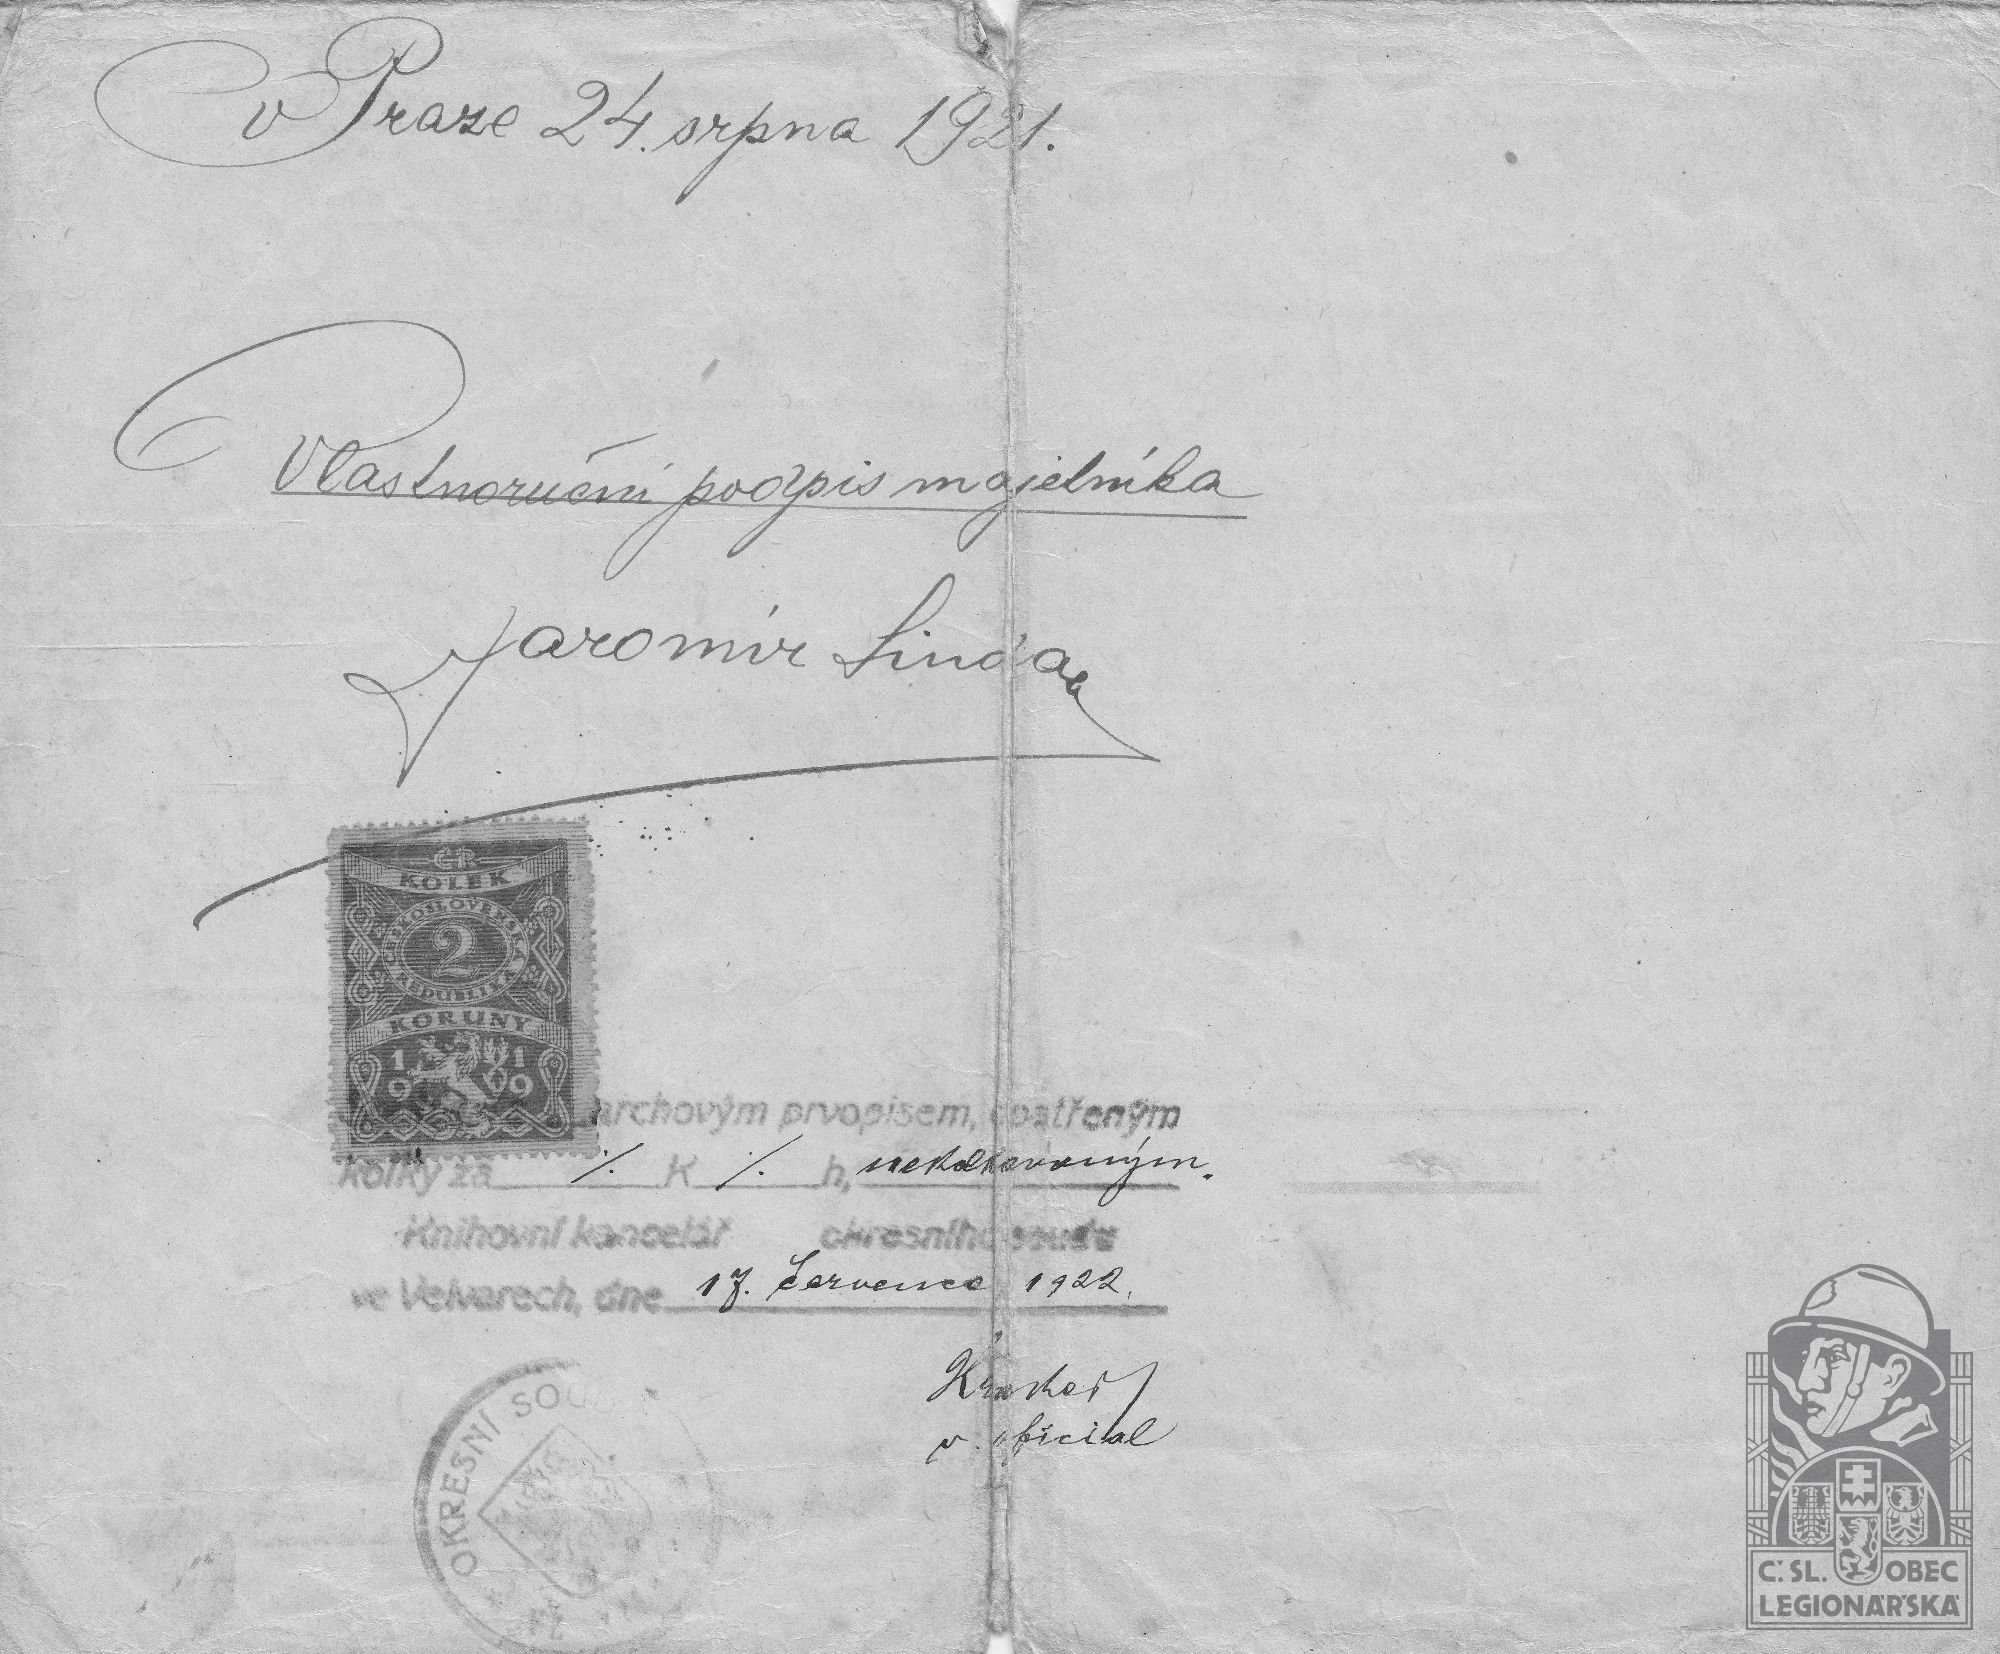 v Praze 24. srpna 1921.
Vlastnoruční podpis majetníka
Jaromír Linda
ČR
KOLEK
ČESKOSLOVENSKÁ
2
REPUBLIKA
KORUNY
1 1
9 9
archovým prvopisem, opatřeným
kolky za ⁒ K ⁒ h, nekolkovaným.
Knihovní kancelář okresního soudu
ve Velvarech, dne 17. července 1922.
v. oficial
OKRESNÍ SOUD
Č. SL. OBEC
LEGIONÁŘSKÁ